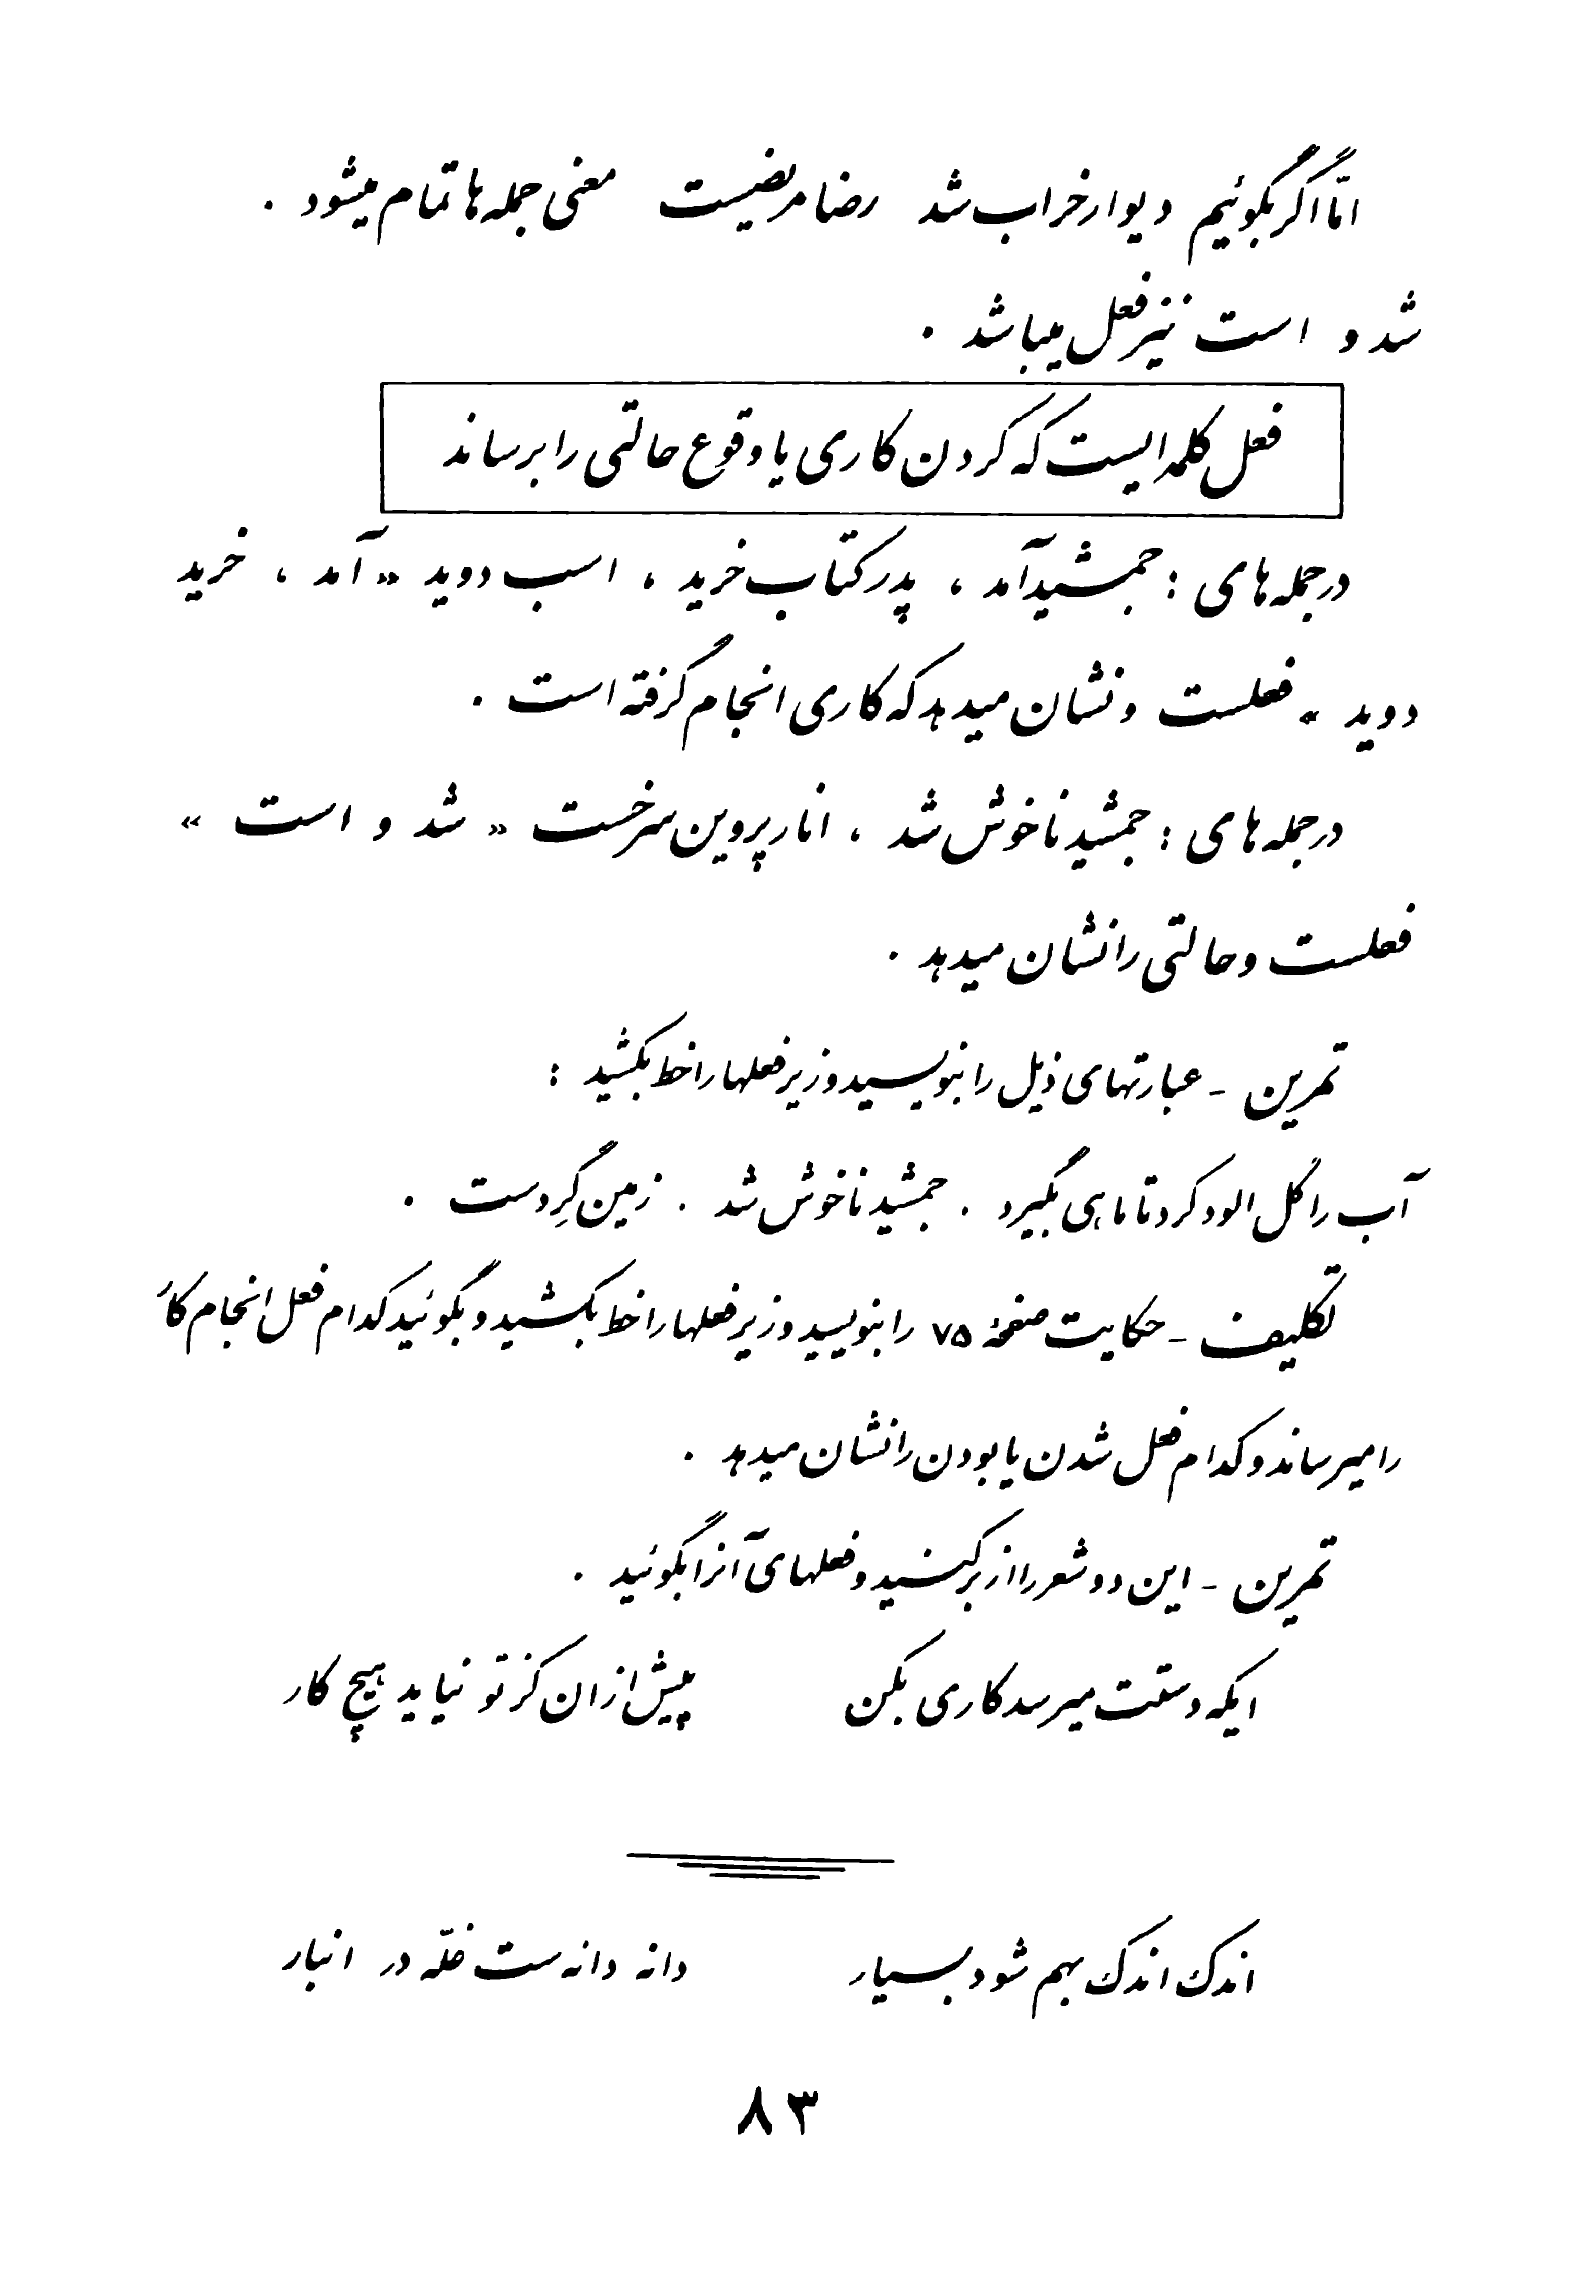 امّا اگر بگوئیم دیوار خراب شد رضا مریضست معنی جمله ها تمام میشود .
شد و است نیز فعل میباشد .
فعل کلمه ایست که کردن کاری یا وقوع حالتی را برساند
در جمله های : جمشید آمد ، پدر کتاب خرید ، اسب دوید « آمد ، خرید
دوید » فعلست و نشان میدهد که کاری انجام گرفته است .
در جمله های : جمشید ناخوش شد ، انار پروین سرخست « شد و است »
فعلست و حالتی را نشان میدهد .
تمرین - عبارتهای ذیل را بنویسید و زیر فعلها را خط بکشید :
آب را گل الود کرد تا ماهی بگیرد . جمشید ناخوش شد . زمین گِردست .
تکلیف - حکایت صفحهٔ ۷۵ را بنویسید و زیر فعلها را خط بکشید و بگوئید کدام فعل انجام کار
را میرساند و کدام فعل شدن یا بودن را نشان میدهد .
تمرین - این دو شعر را از بر کنید و فعلهای آنرا بگوئید .
ایکه دستت میرسد کاری بکن پیش ازان کز تو نیاید هیچ کار
اندک اندک بهم شود بسیار دانه دانه ست غلّه در انبار
۸۳